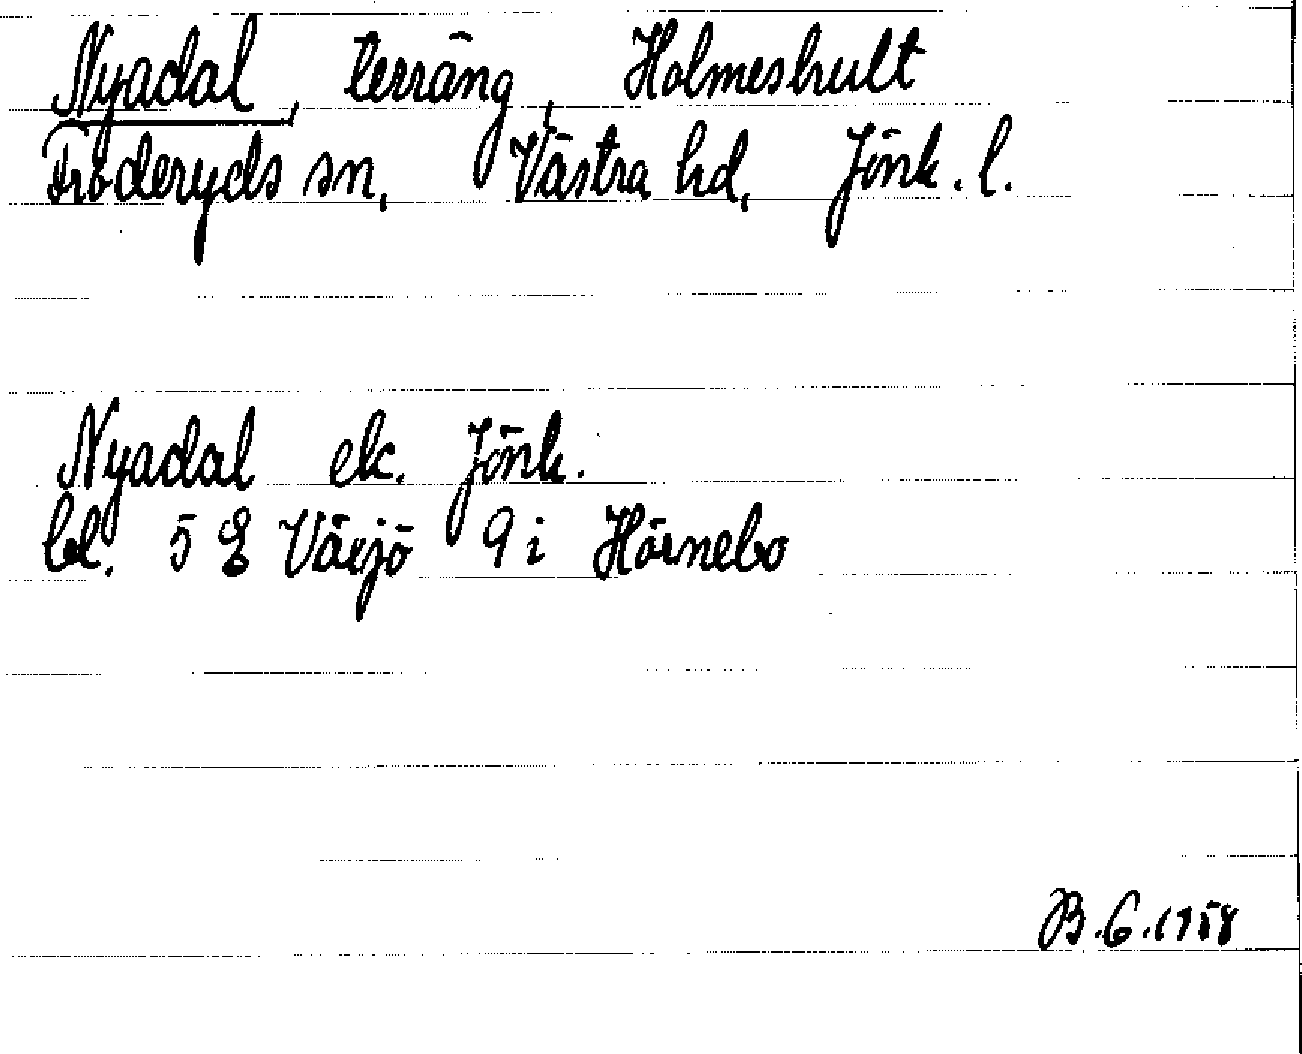 Nyadal, terräng, Holmeshult
Fröderyds sn, Västra hd, Jönk. l.
Nyadal ek. Jönk.
bl. 5 E Växjö 9 i Hörnebo
B.G. 1958